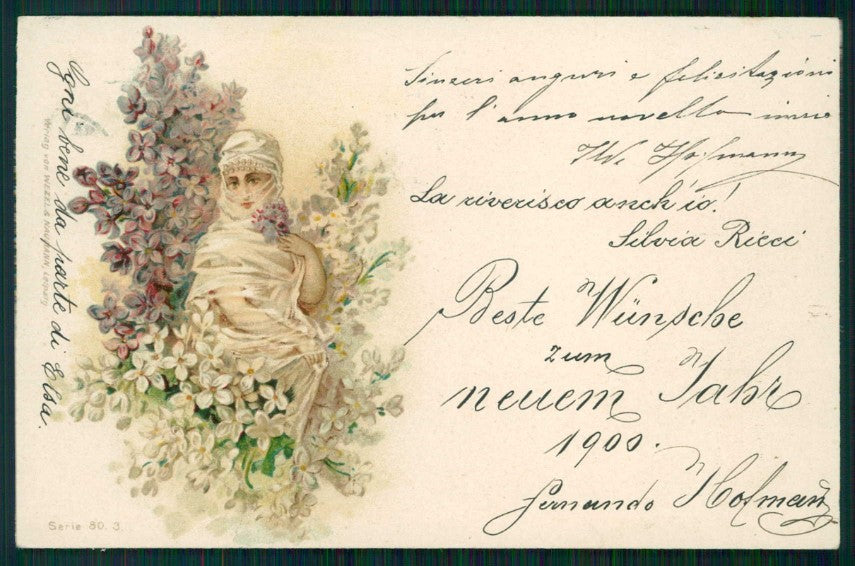 Sinzeri anguri e felicitazioni
per l'anno novello invia
W. Hofmann
La riverisco anch'io!
Silvia Ricci
Beste Wünsche
zum
neuem Jahr
1900.
Fernando Hofmann
Ogni bene da parte di Elsa.
Verlag von WEZEL & NAUMANN, Leipzig
Serie 80. 3.